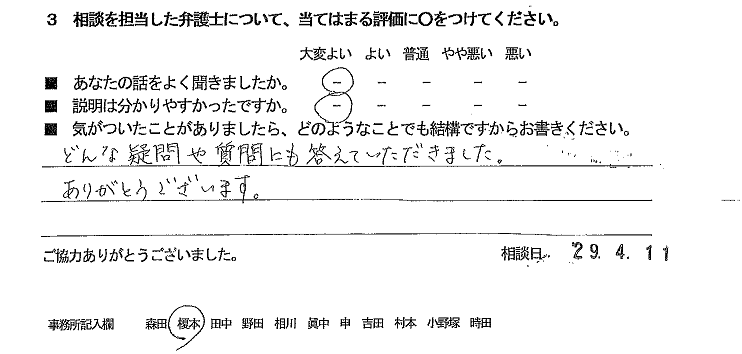 3 相談を担当した弁護士について、当てはまる評価に〇をつけてください。
大変よい よい 普通 やや悪い 悪い
■ あなたの話をよく聞きましたか。 - - - - -
■ 説明は分かりやすかったですか。 - - - - -
■ 気がついたことがありましたら、どのようなことでも結構ですからお書きください。
どんな疑問や質問にも答えていただきました。
ありがとうございます。
ご協力ありがとうございました。 相談日 29. 4. 11
事務所記入欄 森田 榎本 田中 野田 相川 眞中 申 吉田 村本 小野塚 時田